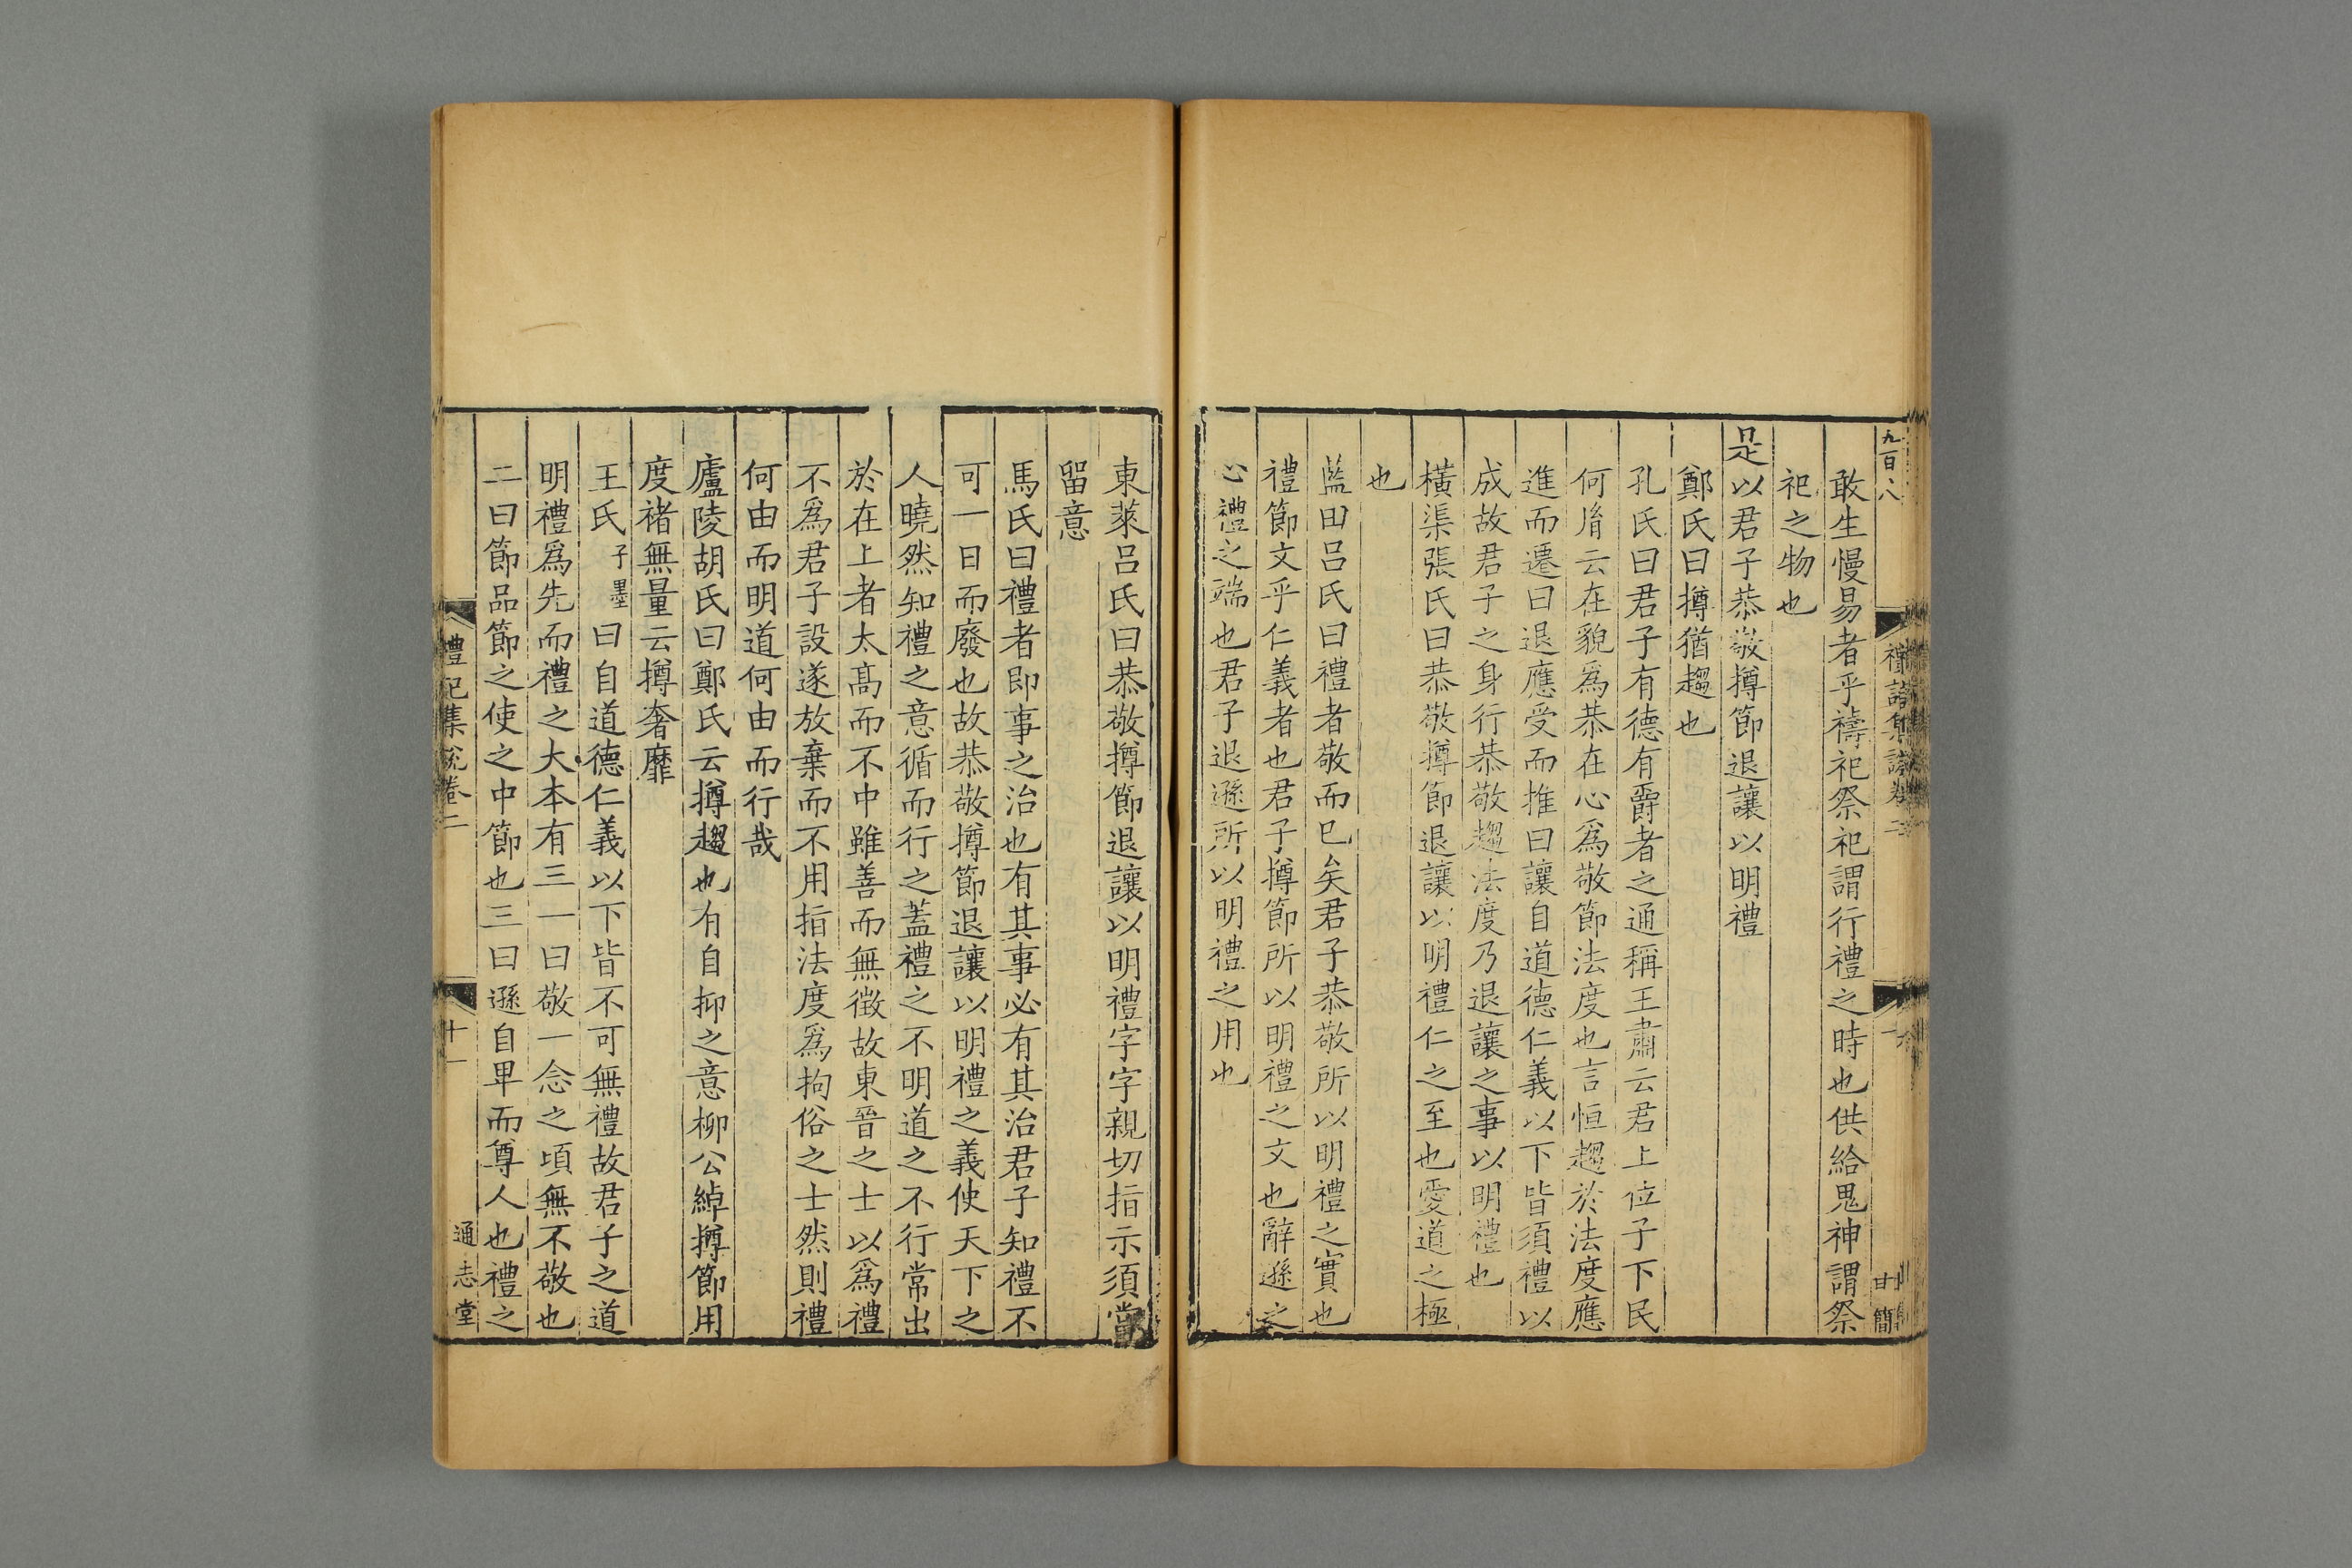 九百八
敢生慢易者乎禱祀祭祀謂行禮之時也供給鬼神謂祭
祀之物也
是以君子恭敬撙節退讓以明禮
鄭氏曰撙猶趨也
孔氏曰君子有德有爵者之通稱王肅云君上位子下民
何胤云在貌爲恭在心爲敬節法度也言恒趨於法度應
進而遷曰退應受而推曰讓自道德仁義以下皆須禮以
成故君子之身行恭敬趨法度乃退讓之事以明禮也
橫渠張氏曰恭敬撙節退讓以明禮仁之至也愛道之極
也
藍田呂氏曰禮者敬而已矣君子恭敬所以明禮之實也
禮節文乎仁義者也君子撙節所以明禮之文也辭遜之
心禮之端也君子退遜所以明禮之用也
甘簡
東萊呂氏曰恭敬撙節退讓以明禮字字親切指示須當
留意
馬氏曰禮者即事之治也有其事必有其治君子知禮不
可一日而廢也故恭敬撙節退讓以明禮之義使天下之
人曉然知禮之意循而行之蓋禮之不明道之不行常出
於在上者太高而不中雖善而無徵故東晉之士以爲禮
不爲君子設遂放棄而不用指法度爲拘俗之士然則禮
何由而明道何由而行哉
廬陵胡氏曰鄭氏云撙趨也有自抑之意柳公綽撙節用
度褚無量云撙奢靡
王氏子墨曰自道德仁義以下皆不可無禮故君子之道
明禮爲先而禮之大本有三一曰敬一念之頃無不敬也
二曰節品節之使之中節也三曰遜自卑而尊人也禮之
禮記集說卷二
十一
通志堂